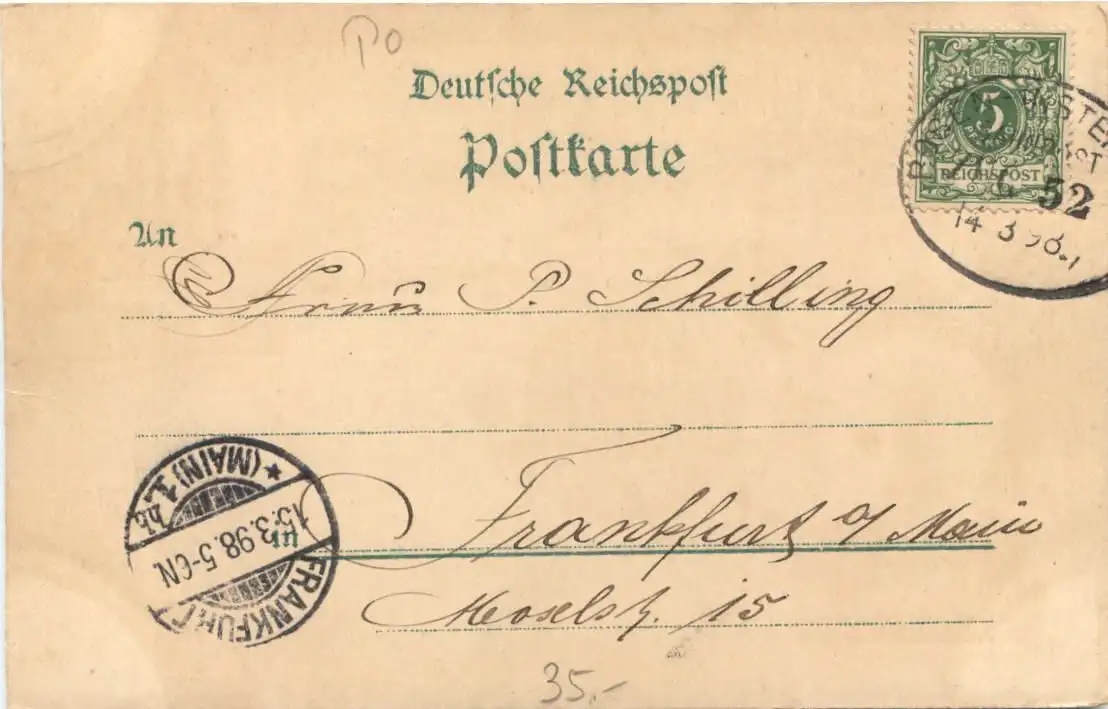 Po
Deutsche Reichspost
Postkarte
5
PFENNIG
REICHSPOST
52
14 3 98
An
Frau P. Schilling
(MAIN) 1
15.3.98.5-6N.
FRANKFURT
in Frankfurt a/ Main
Moselstr. 15
35.-